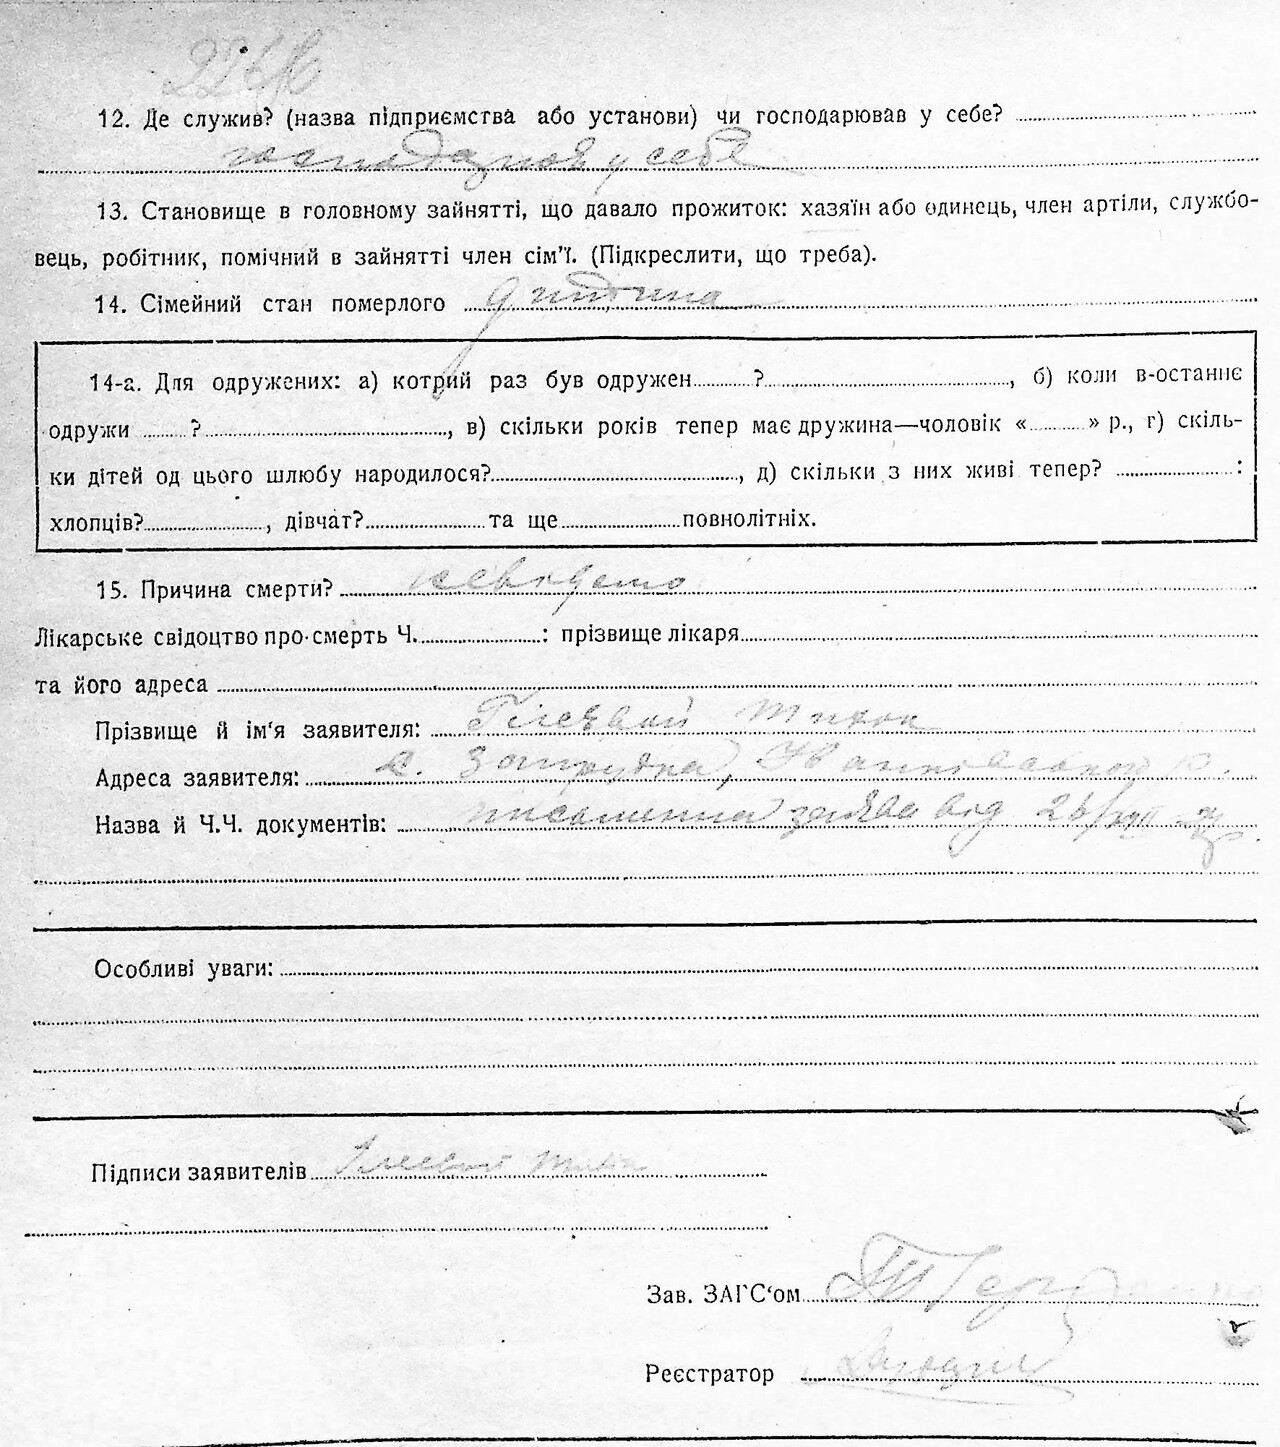 12. Де служив? (назва підприємства або установи) чи господарював у себе?
господарював у себе
13. Становище в головному зайнятті, що давало прожиток: хазяїн або одинець, член артіли, службо-
вець, робітник, помічний в зайнятті член сім'ї. (Підкреслити, що треба).
14. Сімейний стан померлого дитина
14-а. Для одружених: а) котрий раз був одружен ?, б) коли в-останнє
одружи ?, в) скільки років тепер має дружина—чоловік « » р., г) скіль-
ки дітей од цього шлюбу народилося?, д) скільки з них живі тепер? :
хлопців?, дівчат? та ще повнолітніх.
15. Причина смерти? невідомо
Лікарське свідоцтво про смерть Ч. : прізвище лікаря
та його адреса
Прізвище й ім'я заявителя:
Адреса заявителя: с. р.
Назва й Ч.Ч. документів: письменна заява від 26/
Особливі уваги:
Підписи заявителів
Зав. ЗАГС'ом
Реєстратор